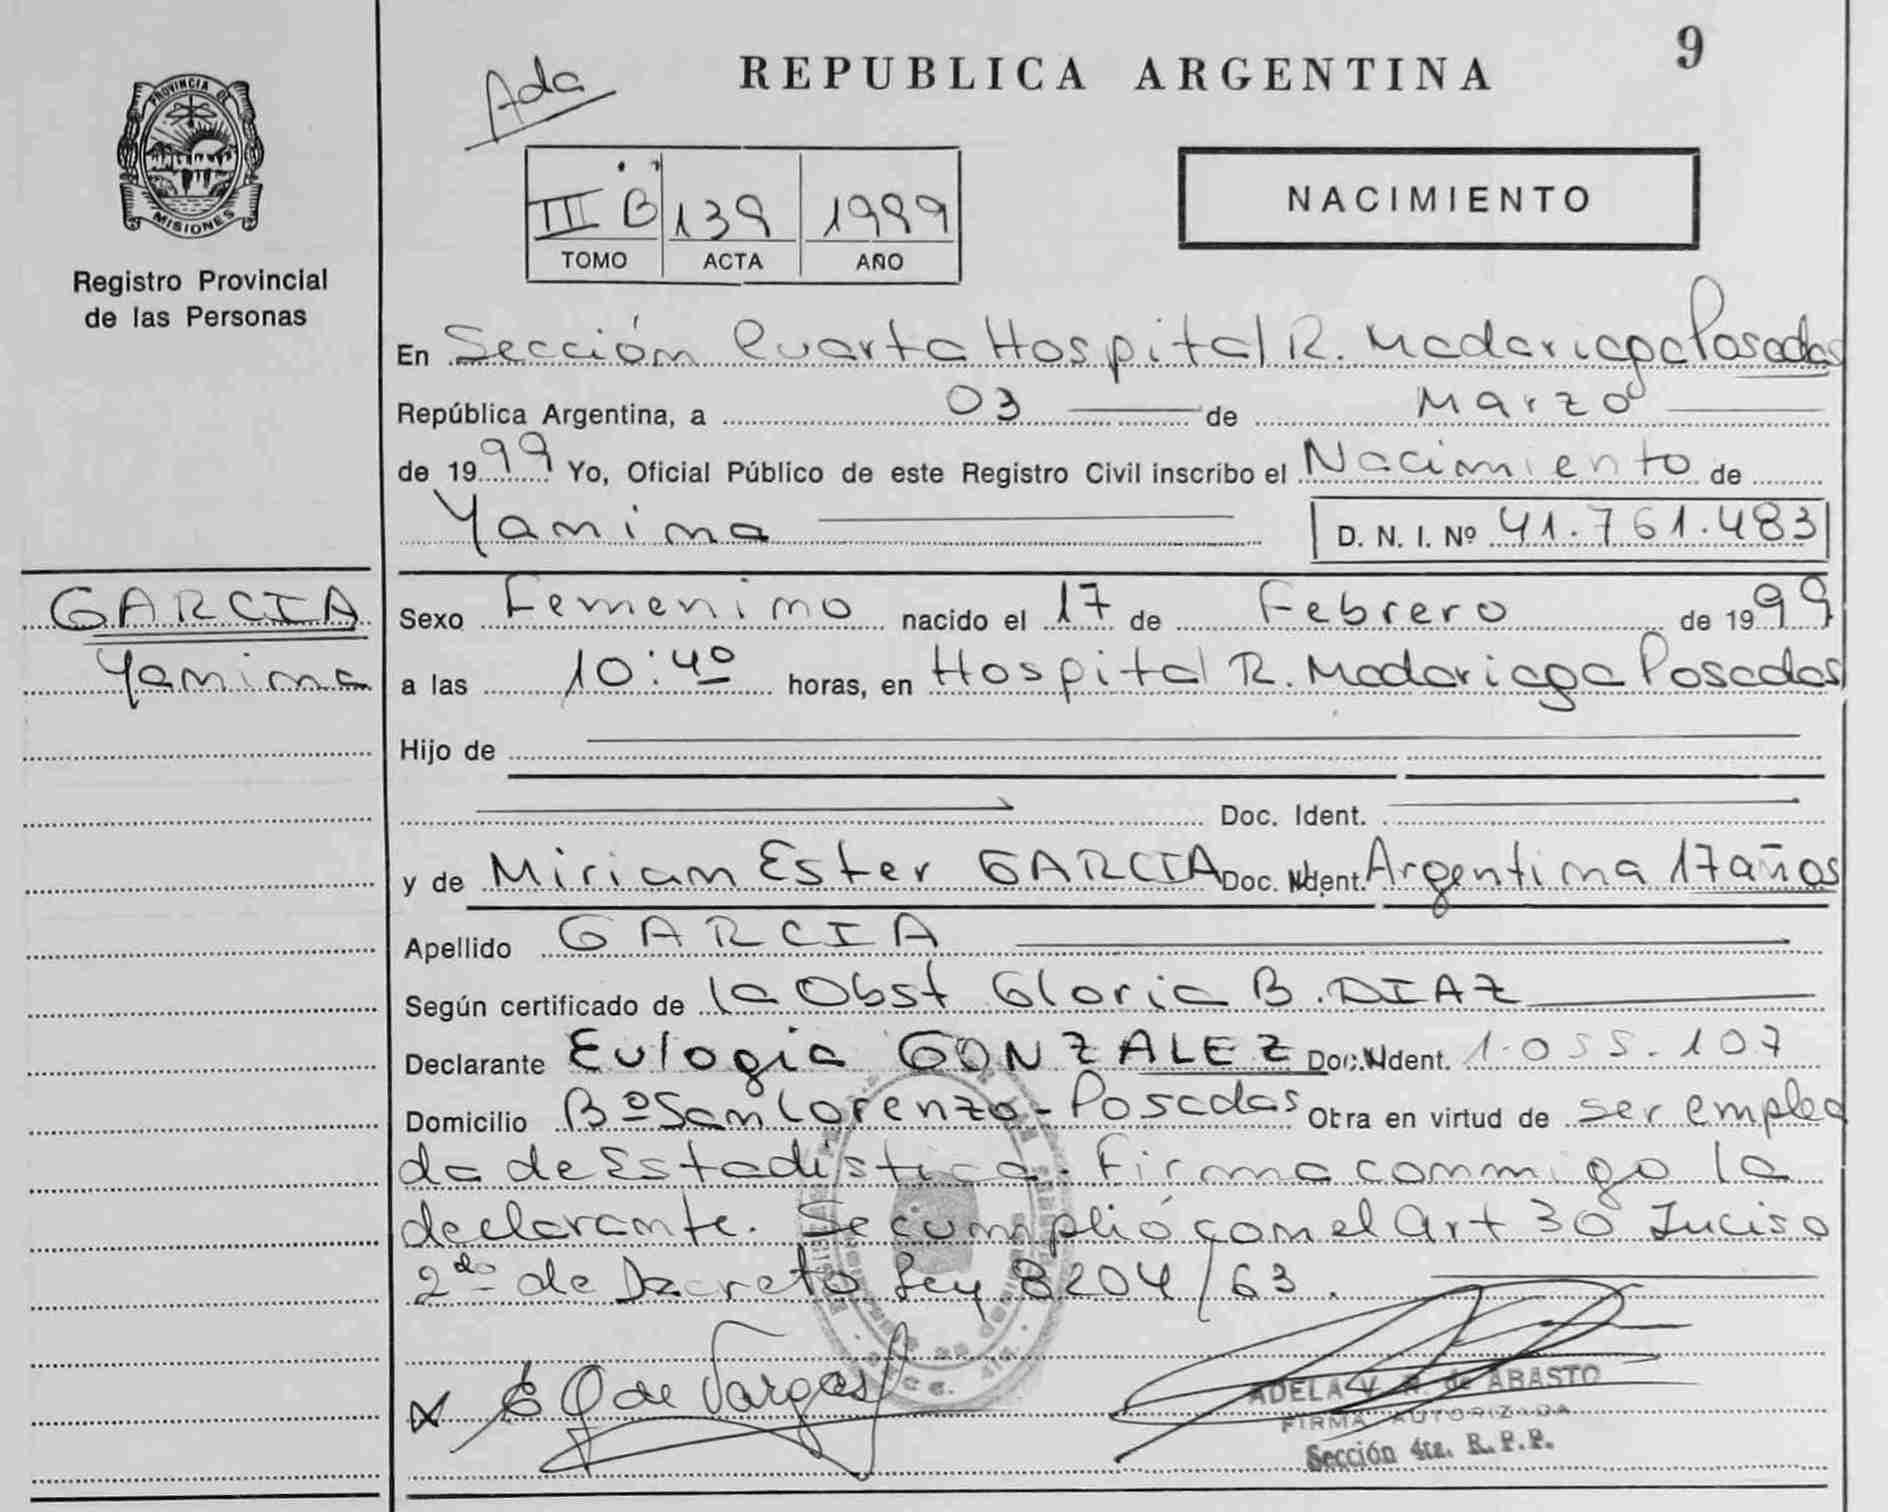 9
Ada
REPUBLICA ARGENTINA
PROVINCIA DE
MISIONES
Registro Provincial
de las Personas
III B 139 1999
TOMO ACTA AÑO
NACIMIENTO
En Sección Cuarta Hospital R. Madariaga Posadas
República Argentina, a 03 de Marzo
de 1999 Yo, Oficial Público de este Registro Civil inscribo el Nacimiento de
Yanina D. N. I. Nº 41.761.483
GARCIA
Yanina
Sexo Femenino nacido el 17 de Febrero de 1999
a las 10:40 horas, en Hospital R. Madariaga Posadas
Hijo de
Doc. Ident.
y de Miriam Ester GARCIA Doc. Ident. Argentina 17 años
Apellido GARCIA
Según certificado de la Obst Gloria B. DIAZ
Declarante Eulogia GONZALEZ Doc. Ident. 1.055.107
Domicilio Bº San Lorenzo - Posadas Obra en virtud de ser emplea
da de Estadística. Firma conmigo la
declarante. Se cumplió con el Art 30 Inciso
2do de Decreto Ley 8204/63.
E G de Vargas
ADELA V. R. de ABASTO
FIRMA AUTORIZADA
Sección 4ta. R.P.P.